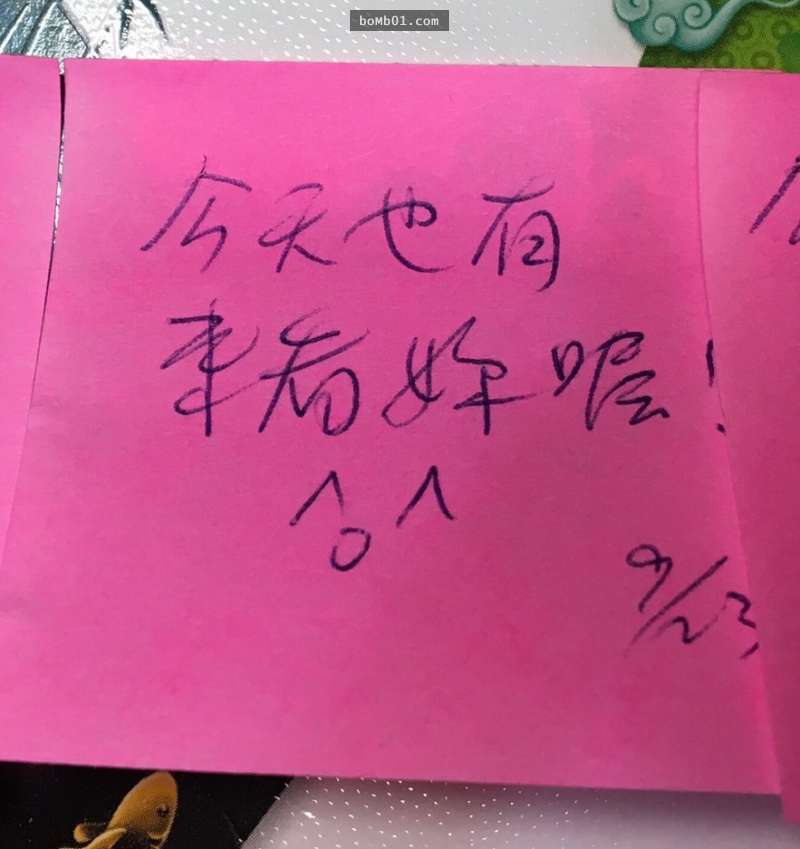 boMb01.com
今天也有
來看妳喔!
^o^
9/23